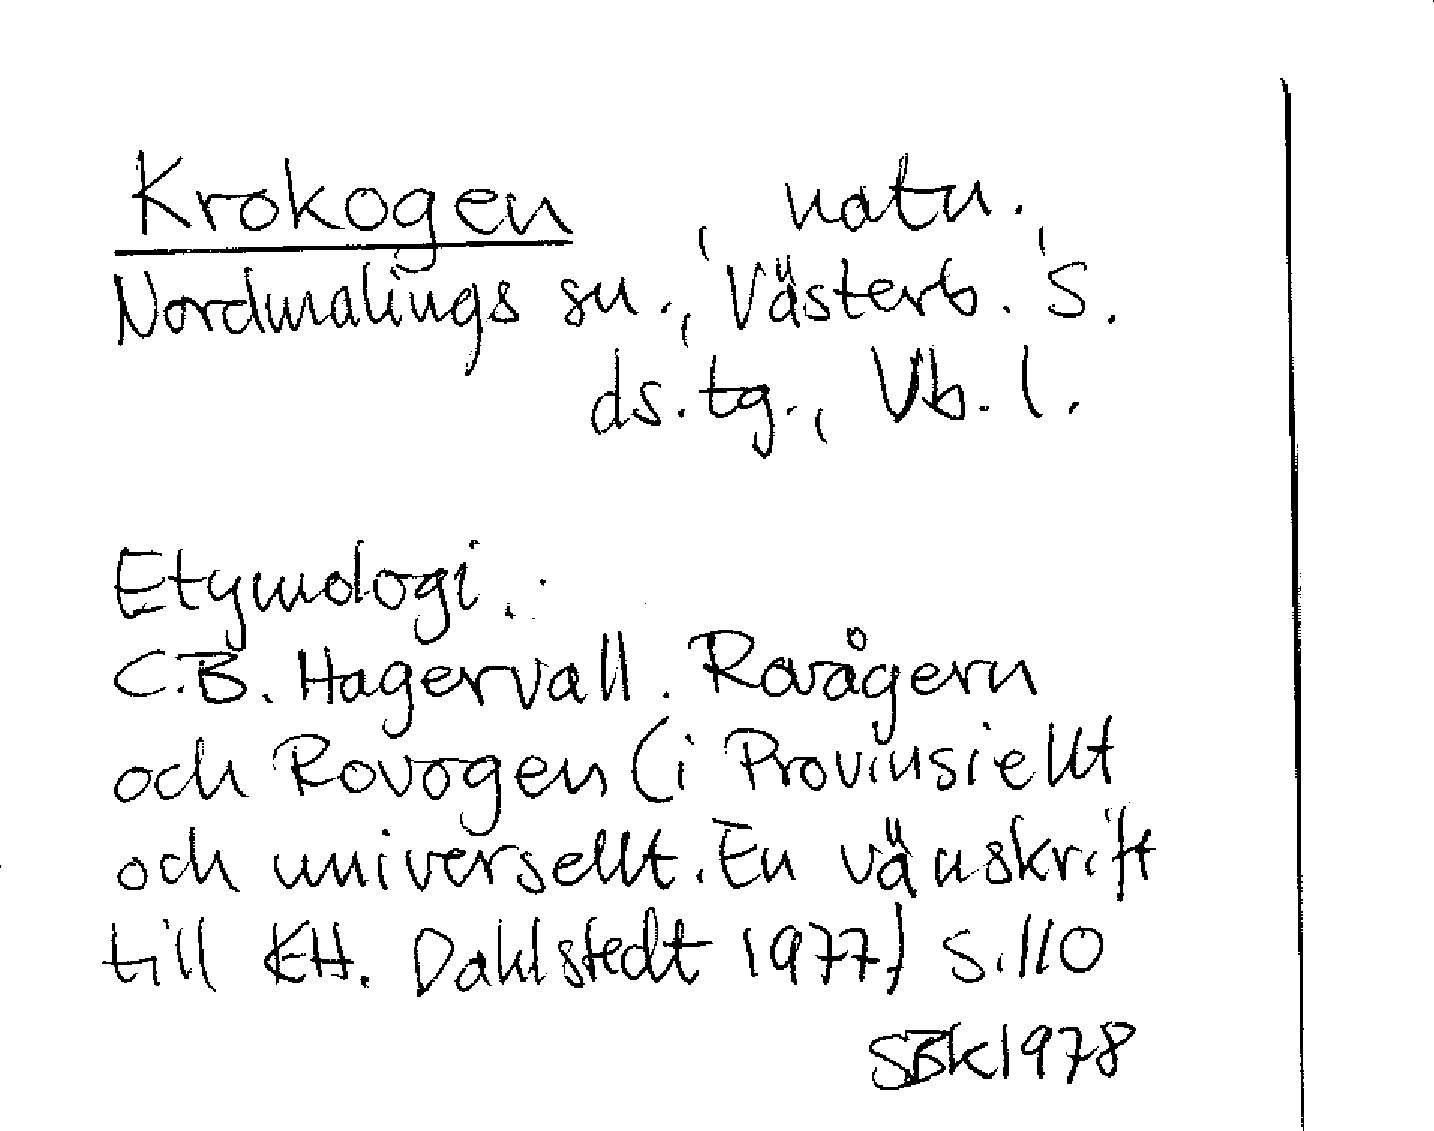 Krokogen, natn.,
Nordmalings sn., Västerb. S.
ds.tg., Vb. l.
Etymologi:
C.B. Hagervall. Rovågern
och Rovogen (i Provinsiellt
och universellt. En vänskrift
till KH. Dahlstedt 1977) S. 110
SBK 1978